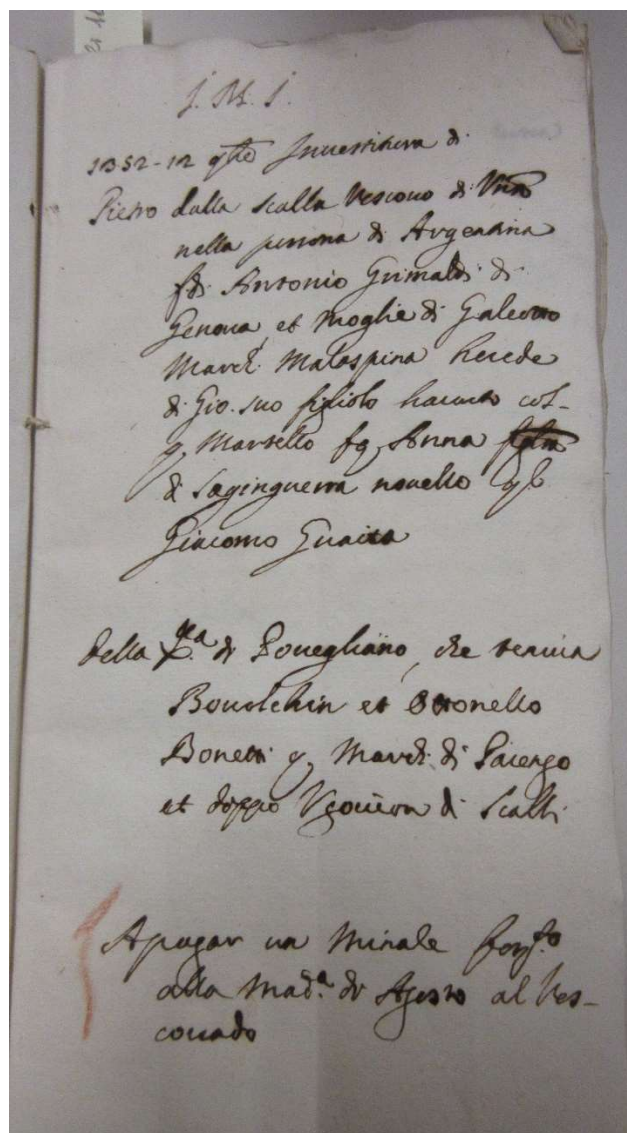 J. M. J.
1352 - 12 Investitura di
Pietro dalla Scalla Vescovo di Vrna
nella persona di Argentina
fq. Antonio Grimaldi di
Genova, et moglie di Galeotto
March. Malaspina herede
di Gio. suo figliolo havuto col
q. Marsello fq. Anna
di Saginguerra novello
Giacomo Guaita
della di Povegliano, che teneva
et Ottonello
Bonetti q. March. di Pacengo
et doppo di Scalli
A pagar un Minale form.to
alla Mad.a di Agosto al Ves-
covado